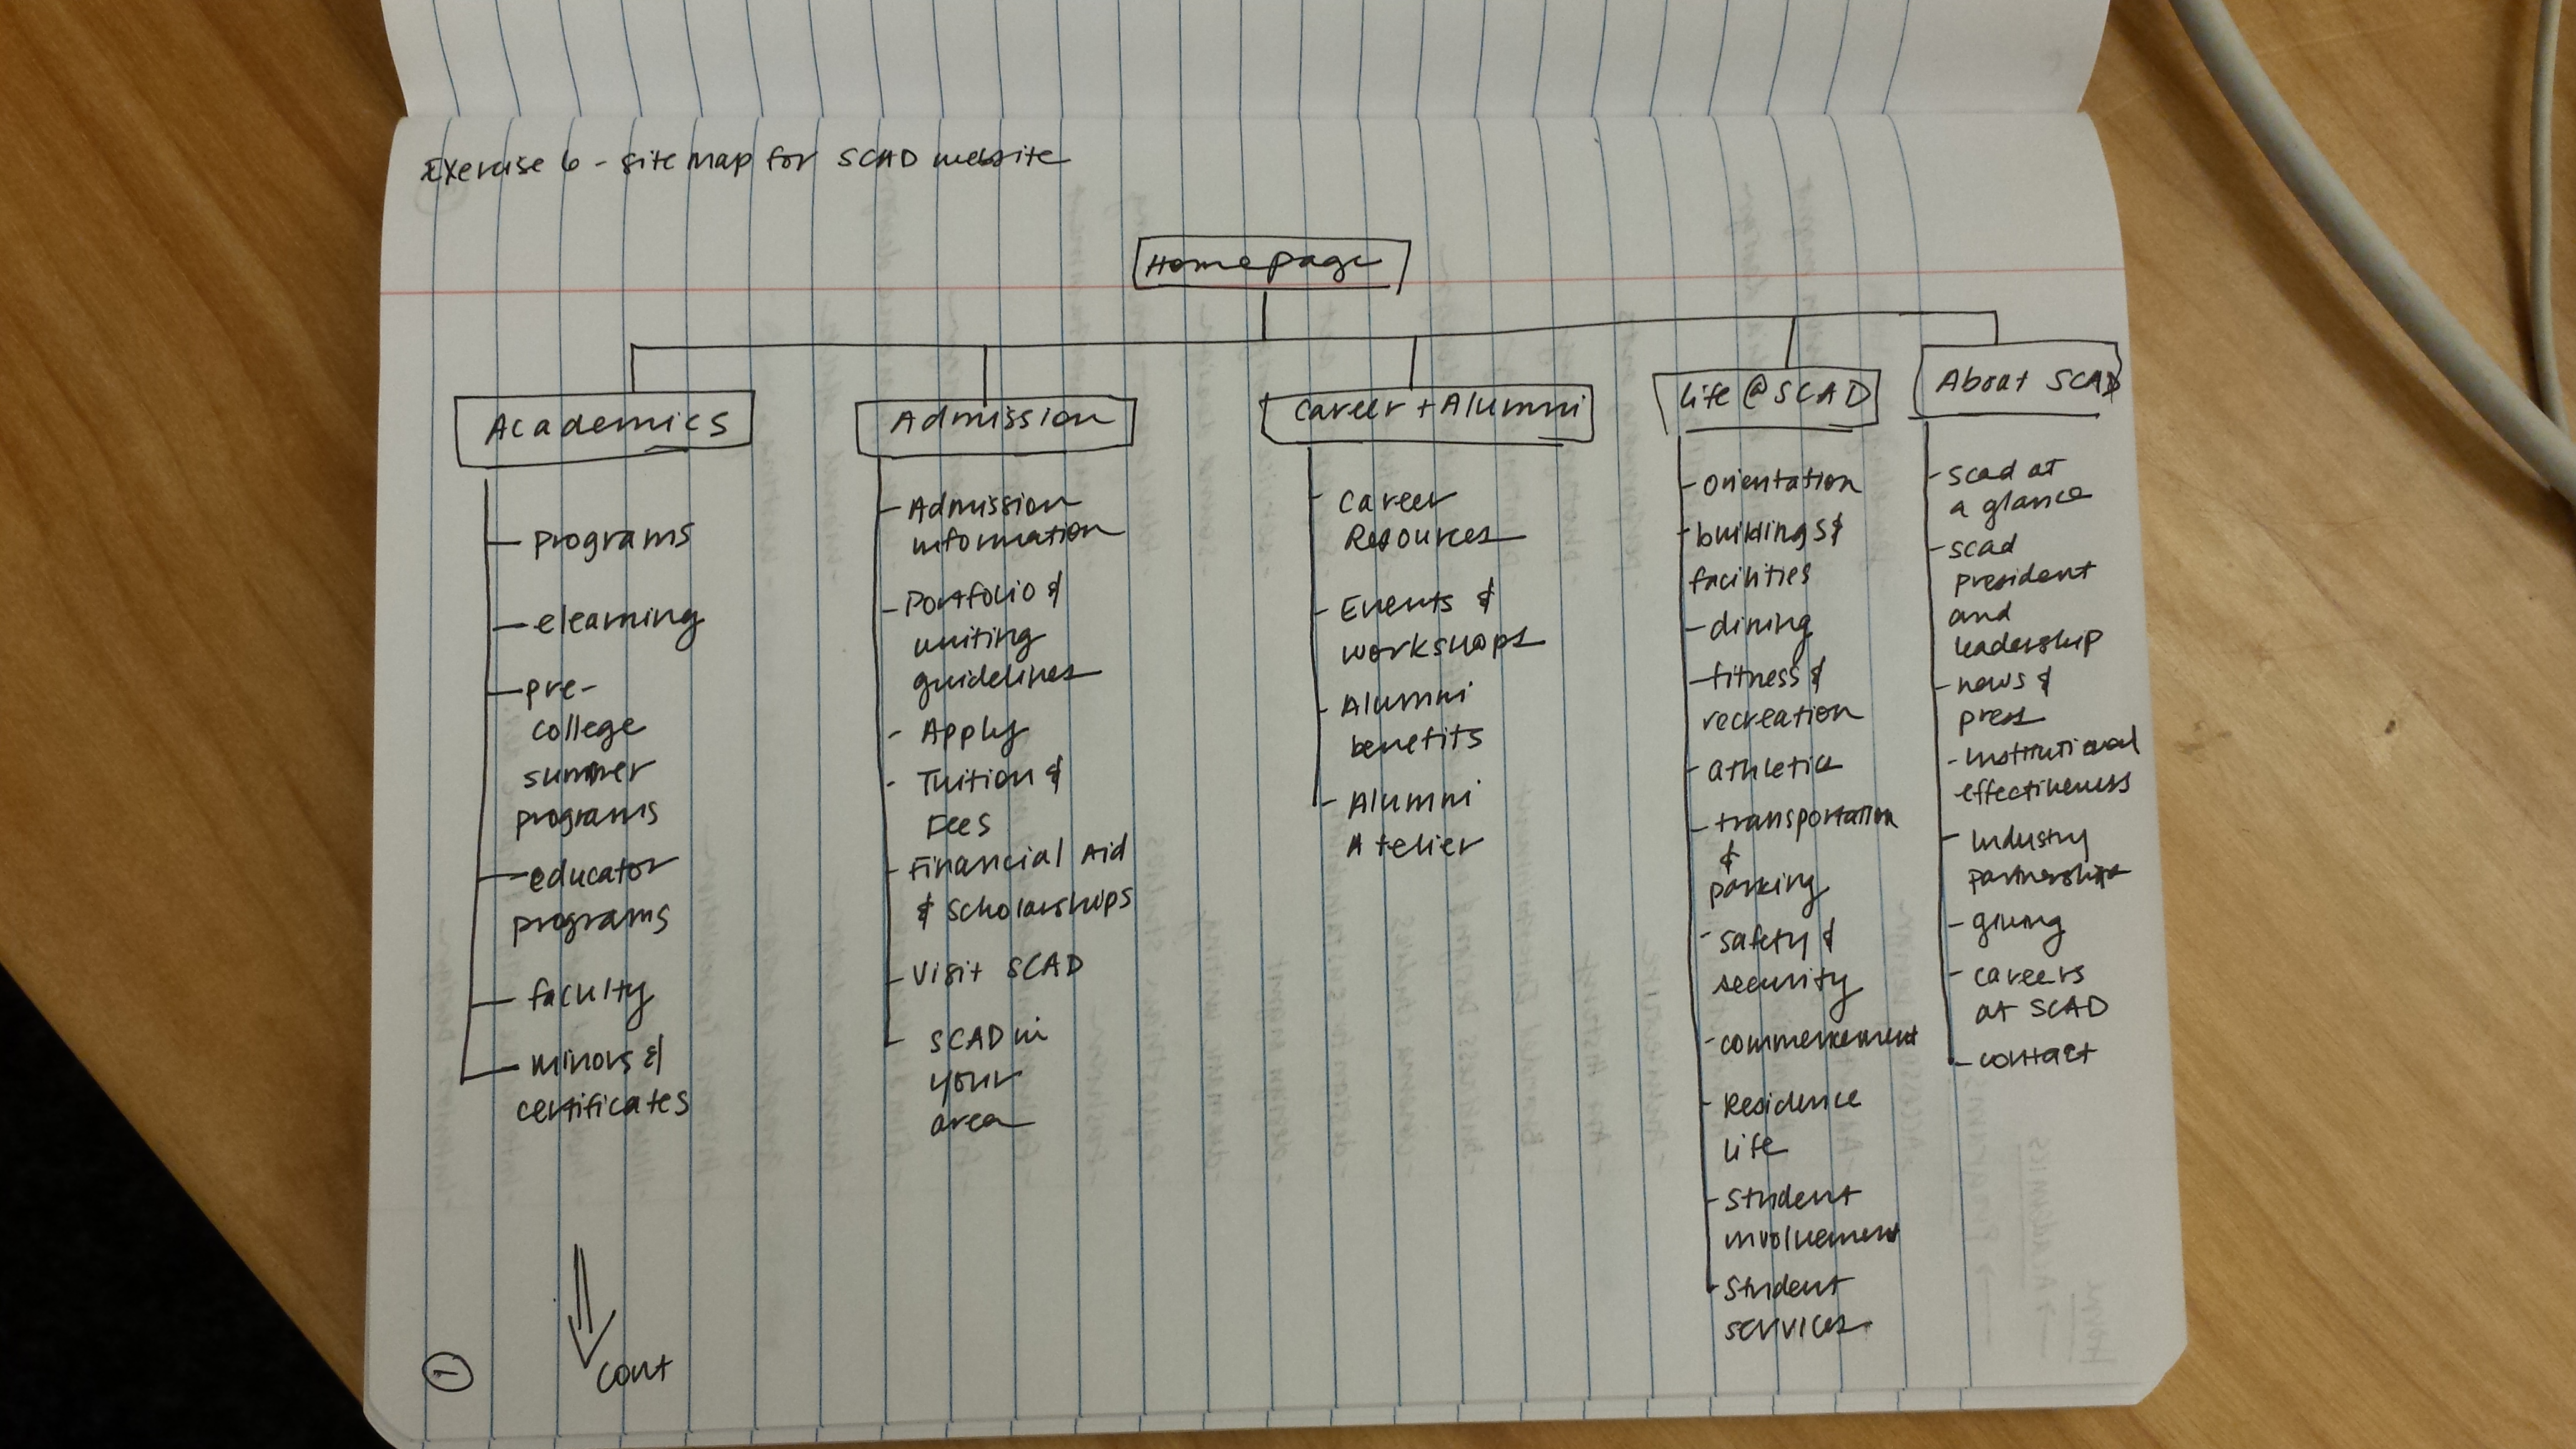 Exercise 6 - site map for SCAD website
Homepage
Academics
- programs
- elearning
- pre-
college
summer
programs
- educator
programs
- faculty
- minors &
certificates
Admission
- Admission
information
- Portfolio &
writing
guidelines
- Apply
- Tuition &
Fees
- Financial Aid
& Scholarships
- Visit SCAD
- SCAD in
your
area
Career + Alumni
- Career
Resources
- Events &
workshops
- Alumni
benefits
- Alumni
Atelier
Life @ SCAD
- orientation
- buildings &
facilities
- dining
- fitness &
recreation
- athletics
- transportation
&
parking
- safety &
security
- commencement
- Residence
life
- Student
involvement
- Student
services
About SCAD
- scad at
a glance
- scad
president
and
leadership
- news &
press
- Institutional
effectiveness
- Industry
partnerships
- giving
- careers
at SCAD
- contact
cont
1